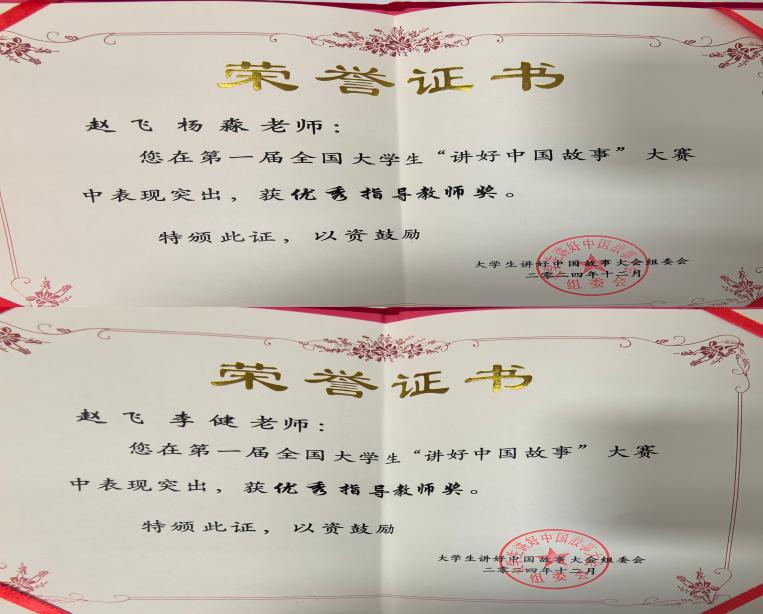 荣誉证书
赵飞 杨淼老师：
您在第一届全国大学生“讲好中国故事”大赛
中表现突出，获优秀指导教师奖。
特颁此证，以资鼓励
大学生讲好中国故事大会组委会
二〇二四年十二月
组委会
荣誉证书
赵飞 李健老师：
您在第一届全国大学生“讲好中国故事”大赛
中表现突出，获优秀指导教师奖。
特颁此证，以资鼓励
大学生讲好中国故事大会组委会
二〇二四年十二月
组委会